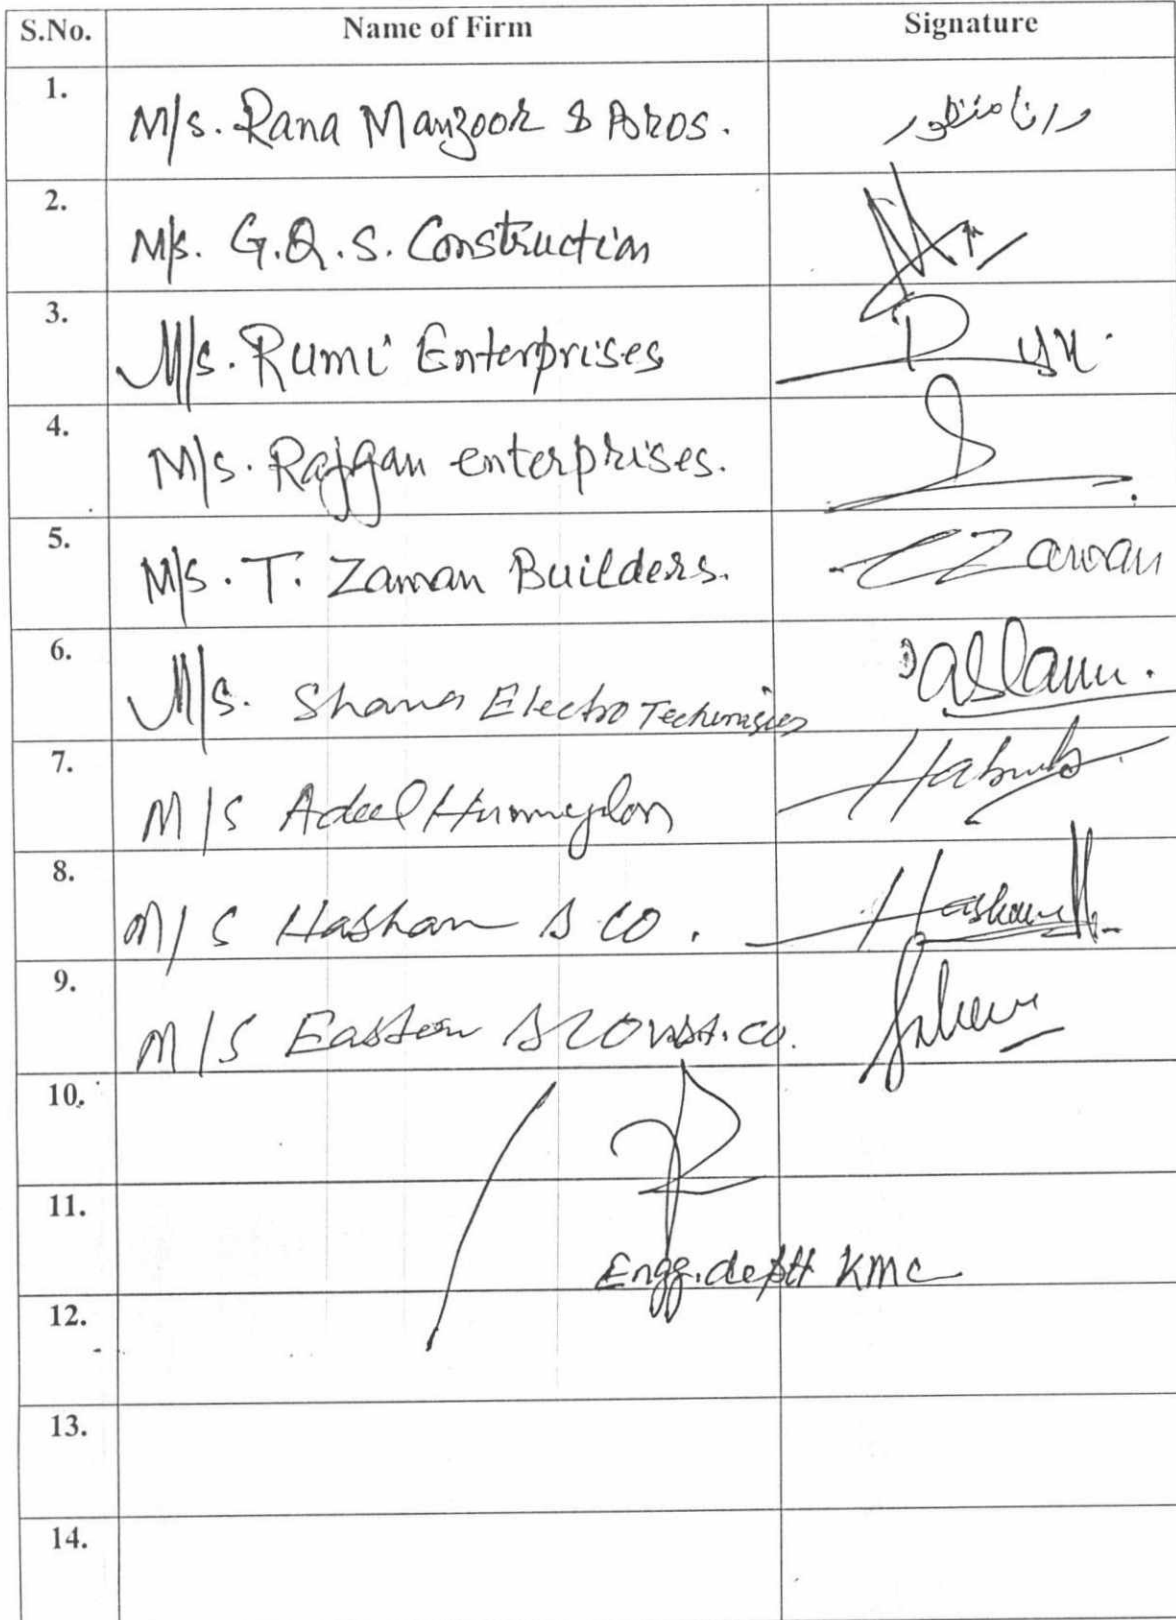 S.No. Name of Firm Signature
1. M/s. Rana Manzoor & Bros. رانا منظور
2. M/s. G.Q.S. Construction
3. M/s. Rumi Enterprises
4. M/s. Rajgan enterprises.
5. M/s. T. Zaman Builders. Zaman
6. M/s. Electro aslam.
7. M/S Adeel Habib
8. M/S Hasham & CO. Hasham
9. M/S Eastern & Const. CO.
10.
11.
Engg. deptt KMC
12.
13.
14.